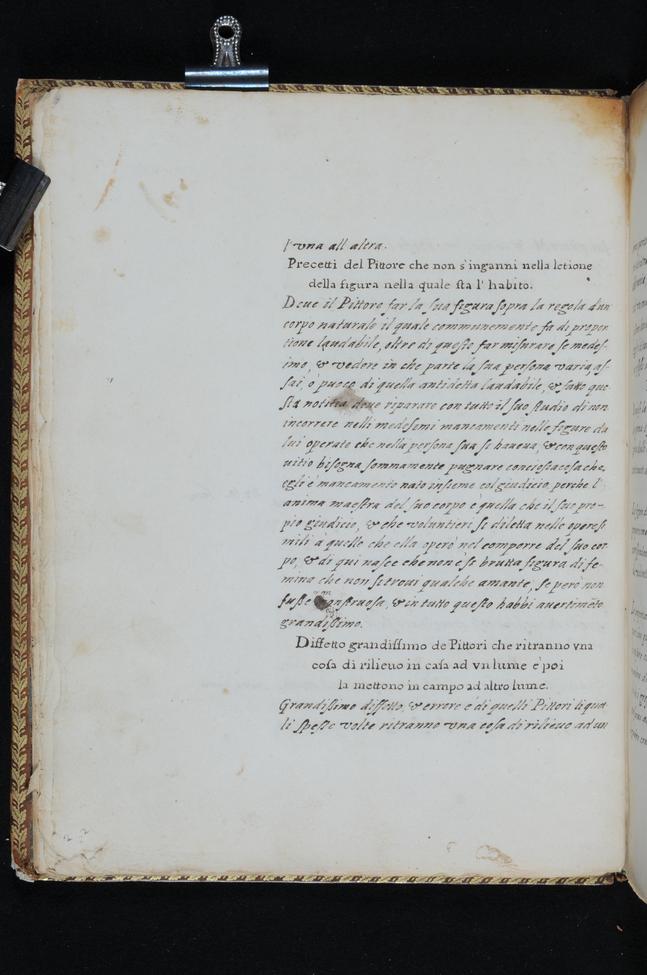 l'vna all'altra.
Precetti del Pittore che non s'inganni nella letione
della figura nella quale sta l'habito.
Deue il Pittore far la sua figura sopra la regola d'un
corpo naturale il quale communemente fa di propor
tione laudabile, oltre di questo far misurare se medes,
imo, & vedere in che parte la sua persona varia as,
sai, ò puoco di quella antidetta laudabile, & fatto que
sta notitia deue riparare con tutto il suo studio di non
incorrere nelli medesimi mancamenti nelle figure da
lui operate che nella persona sua si haueua, & con questo
uitio bisogna sommamente pugnare conciosiacosa che,
egli è mancamento nato insieme col giudicio, perche l'
anima maestra del suo corpo è quella che il suo pro-
pio giudicio, & che voluntieri si diletta nelle opere si
mili à quelle che ella operò nel comporre del suo cor
po, & di qui nasce che non è sì brutta figura di fe-
mina che non si troui qualche amante, se però non
fusse monstruosa, & in tutto questo habbi auertimeto
grandissimo.
Diffetto grandissimo de Pittori che ritranno vna
cosa di rilieuo in casa ad vn lume e poi
la mettono in campo ad altro lume.
Grandissimo diffetto, & errore è di quelli Pittori li qua
li spesse volte ritranno vna cosa di rilieuo ad un